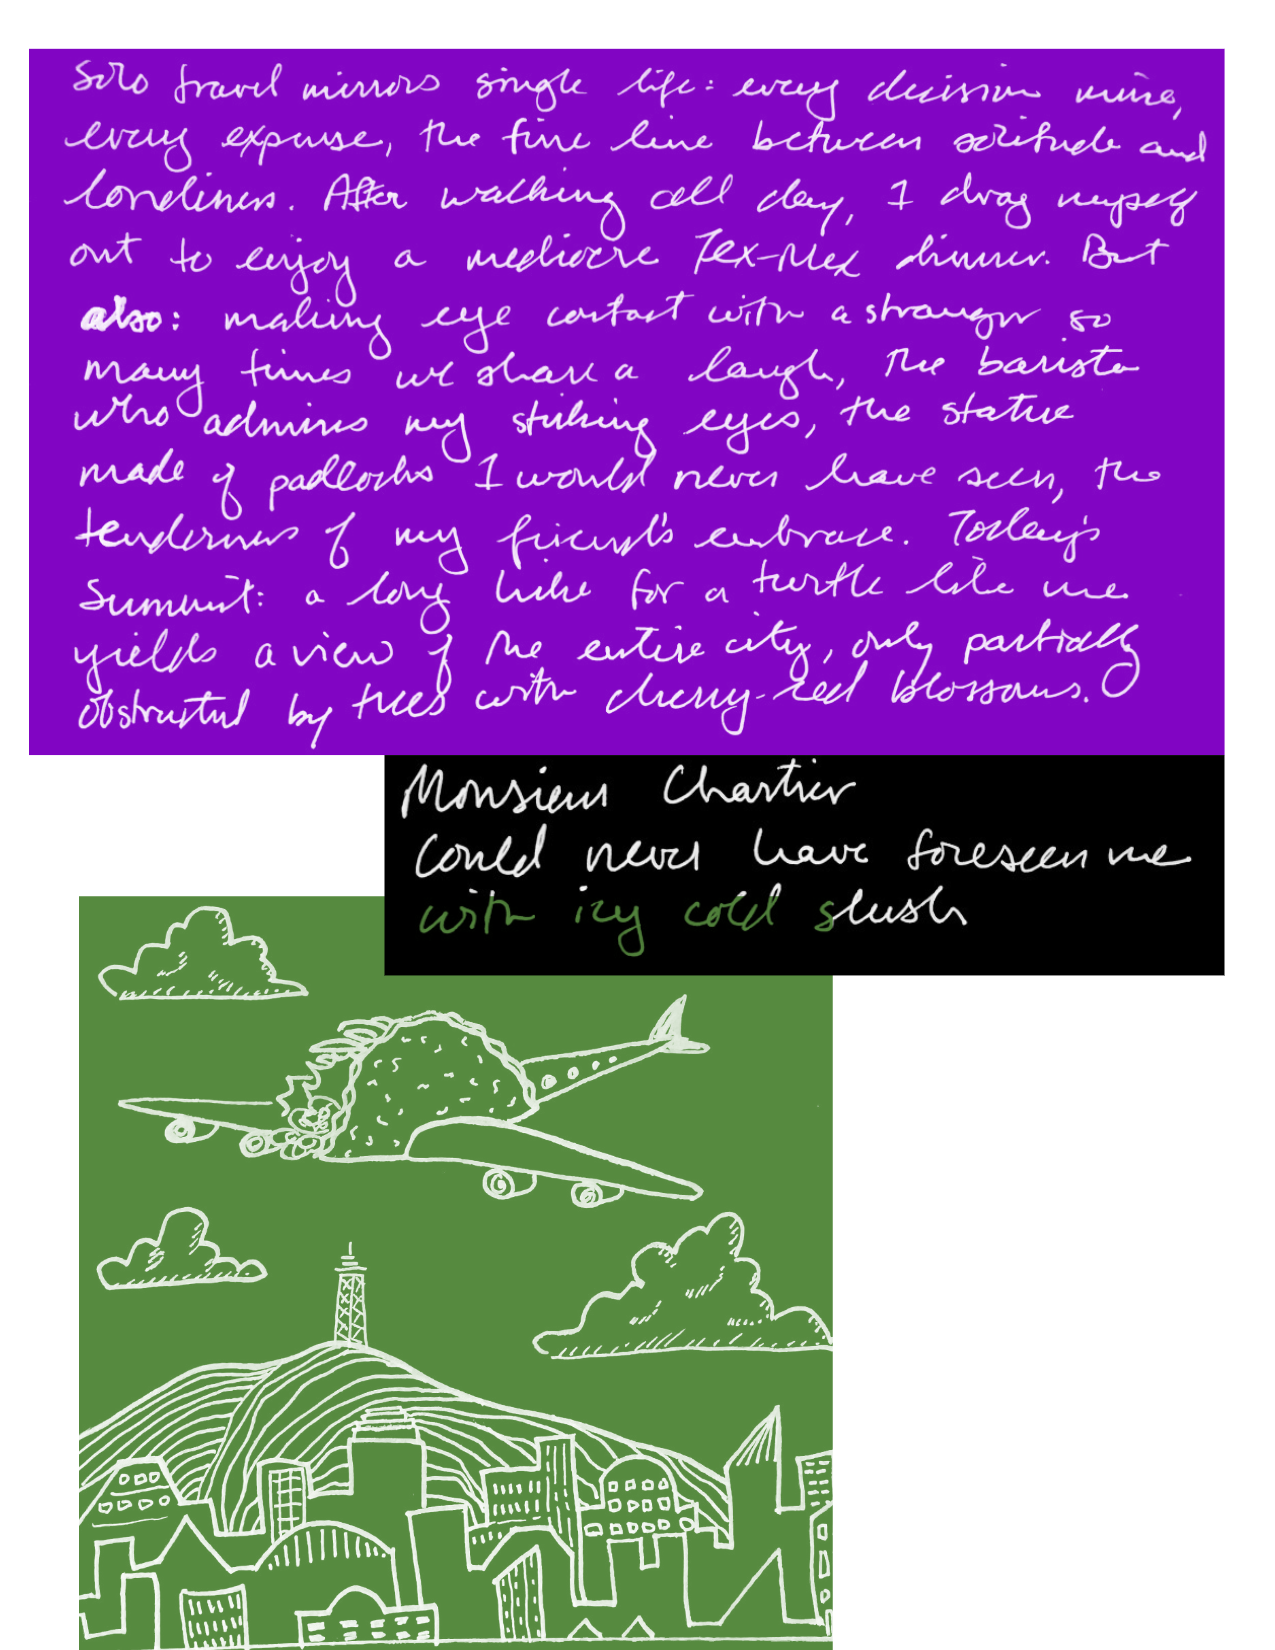 Solo travel mirrors single life: every decision mine,
every expense, the fine line between solitude and
loneliness. After walking all day, I drag myself
out to enjoy a mediocre Tex-Mex dinner. But
also: making eye contact with a stranger so
many times we share a laugh, the barista
who admires my striking eyes, the statue
made of padlocks I would never have seen, the
tenderness of my friend's embrace. Today's
summit: a long hike for a turtle like me
yields a view of the entire city, only partially
obstructed by trees with cherry-red blossoms.
Monsieur Chartier
Could never have foreseen me
with icy cold slush